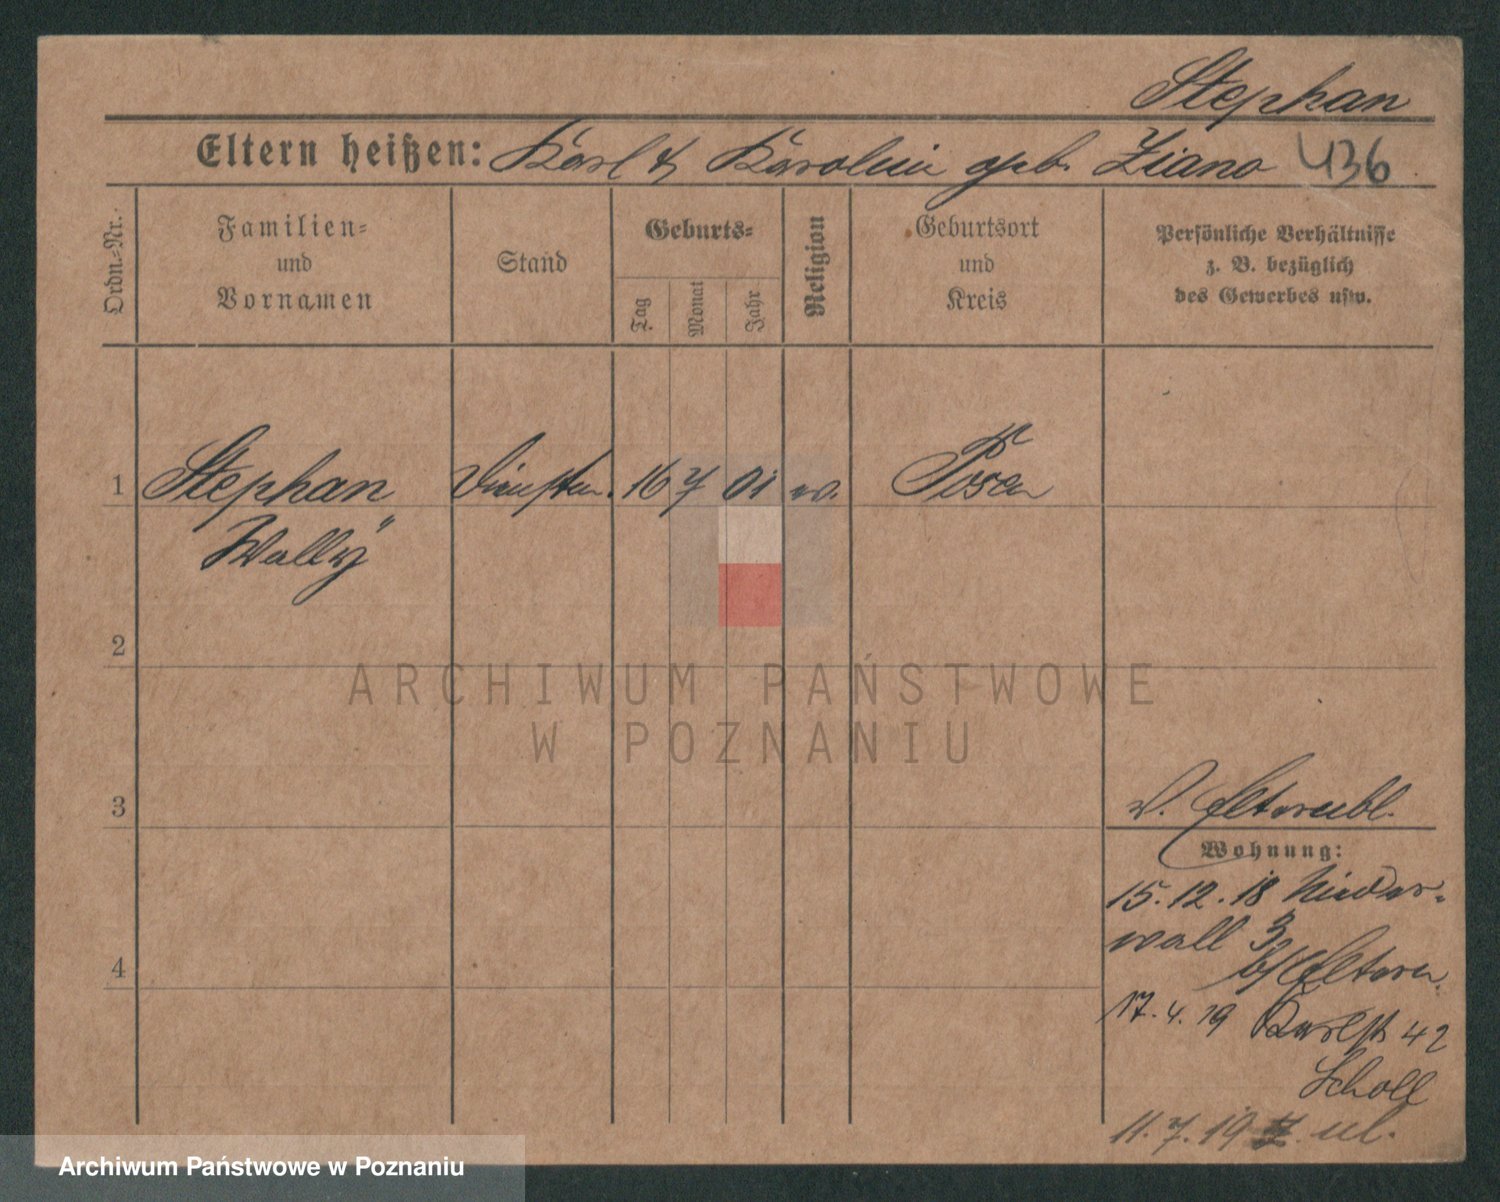 Stephan
Eltern heißen: Karl & Karolin geb. Ziano 436
Ordn.-Nr.
Familien-
und
Vornamen
Stand
Geburts-
Tag
Monat
Jahr
Religion
Geburtsort
und
Kreis
Persönliche Verhältnisse
z. B. bezüglich
des Gewerbes usw.
1 Stephan 16 7 01 Posen
Wally
2
ARCHIWUM PAŃSTWOWE
W POZNANIU
3
Wohnung:
15.12.18 Nieder-
wall 3
b/Eltern.
4
17.4.19 Karlstr 42
Scholl
11.7.19
Archiwum Państwowe w Poznaniu